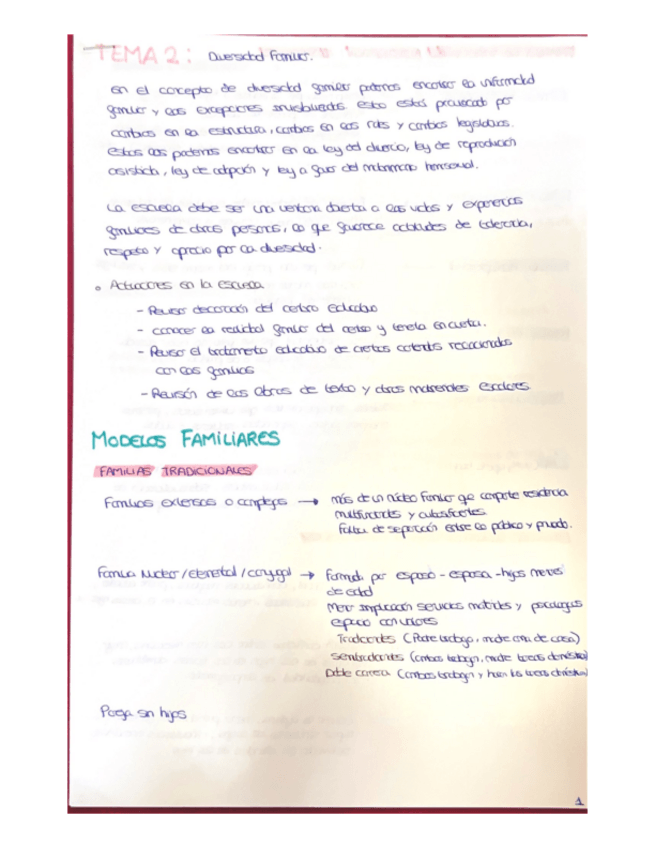 TEMA 2: Diversidad Familiar.
En el concepto de diversidad familiar podemos encontrar la
familiar y las excepciones esto está provocado por
cambios en la estructura, cambios en los roles y cambios legislativos.
Estos los podemos encontrar en la ley del divorcio, ley de reproducción
asistida, ley de adopción y ley a favor del matrimonio homosexual.
La escuela debe ser una ventana abierta a las vidas y experiencias
familiares de otras personas, lo que favorece actitudes de tolerancia,
respeto y aprecio por la diversidad.
• Actuaciones en la escuela
- Revisar decoración del centro educativo
- Conocer la realidad familiar del centro y tenerla en cuenta.
- Revisar el tratamiento educativo de ciertos contenidos relacionados
con las familias
- Revisión de los libros de texto y otros materiales escolares
MODELOS FAMILIARES
FAMILIAS TRADICIONALES
Familias extensas o complejas → más de un núcleo familiar que comparte residencia
multifuncionales y autosuficientes
Falta de separación entre lo público y privado.
Familia Nuclear / elemental / conyugal → Formada por esposo - esposa - hijos menores
de edad
Menor implicación servicios
espacio con
Tradicionales (Padre trabaja, madre ama de casa)
(ambos trabajan, madre tareas domésticas)
Doble carrera (ambos trabajan y hacen las tareas domésticas)
Pareja sin hijos
1